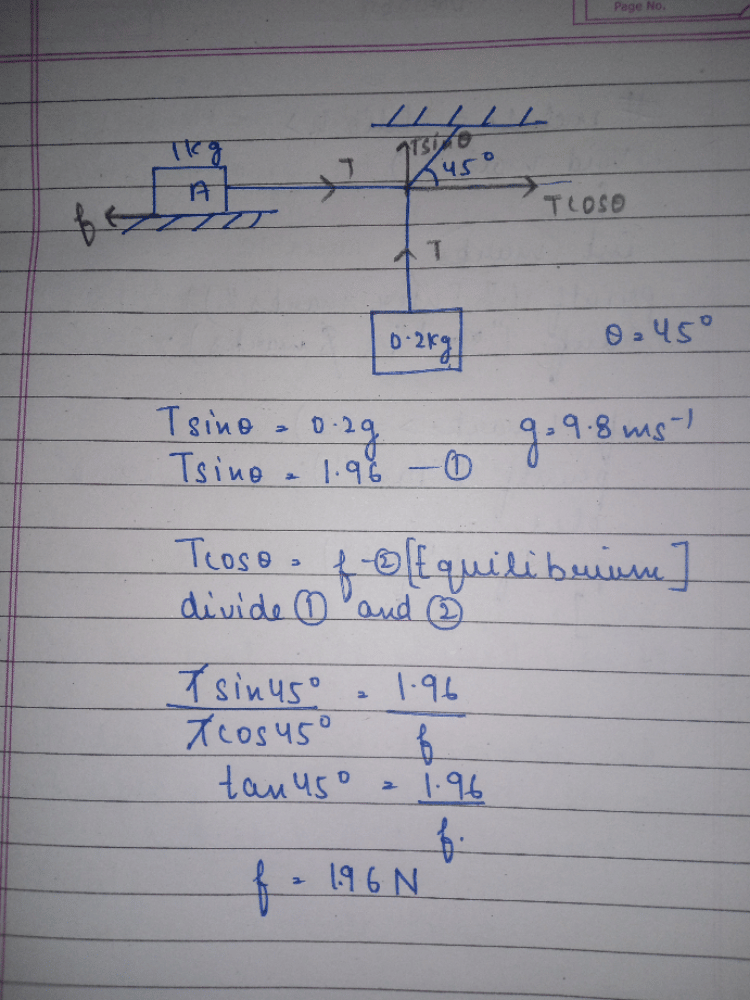 Page No.
1kg
Tsinθ
A
T
45°
f
Tcosθ
T
0.2kg
θ = 45°
Tsinθ = 0.2g
g = 9.8 ms⁻¹
Tsinθ = 1.96 — ①
Tcosθ = f -② [Equilibrium]
divide ① and ②
Tsin45° = 1.96
Tcos45° f
tan45° = 1.96
f.
f = 1.96 N